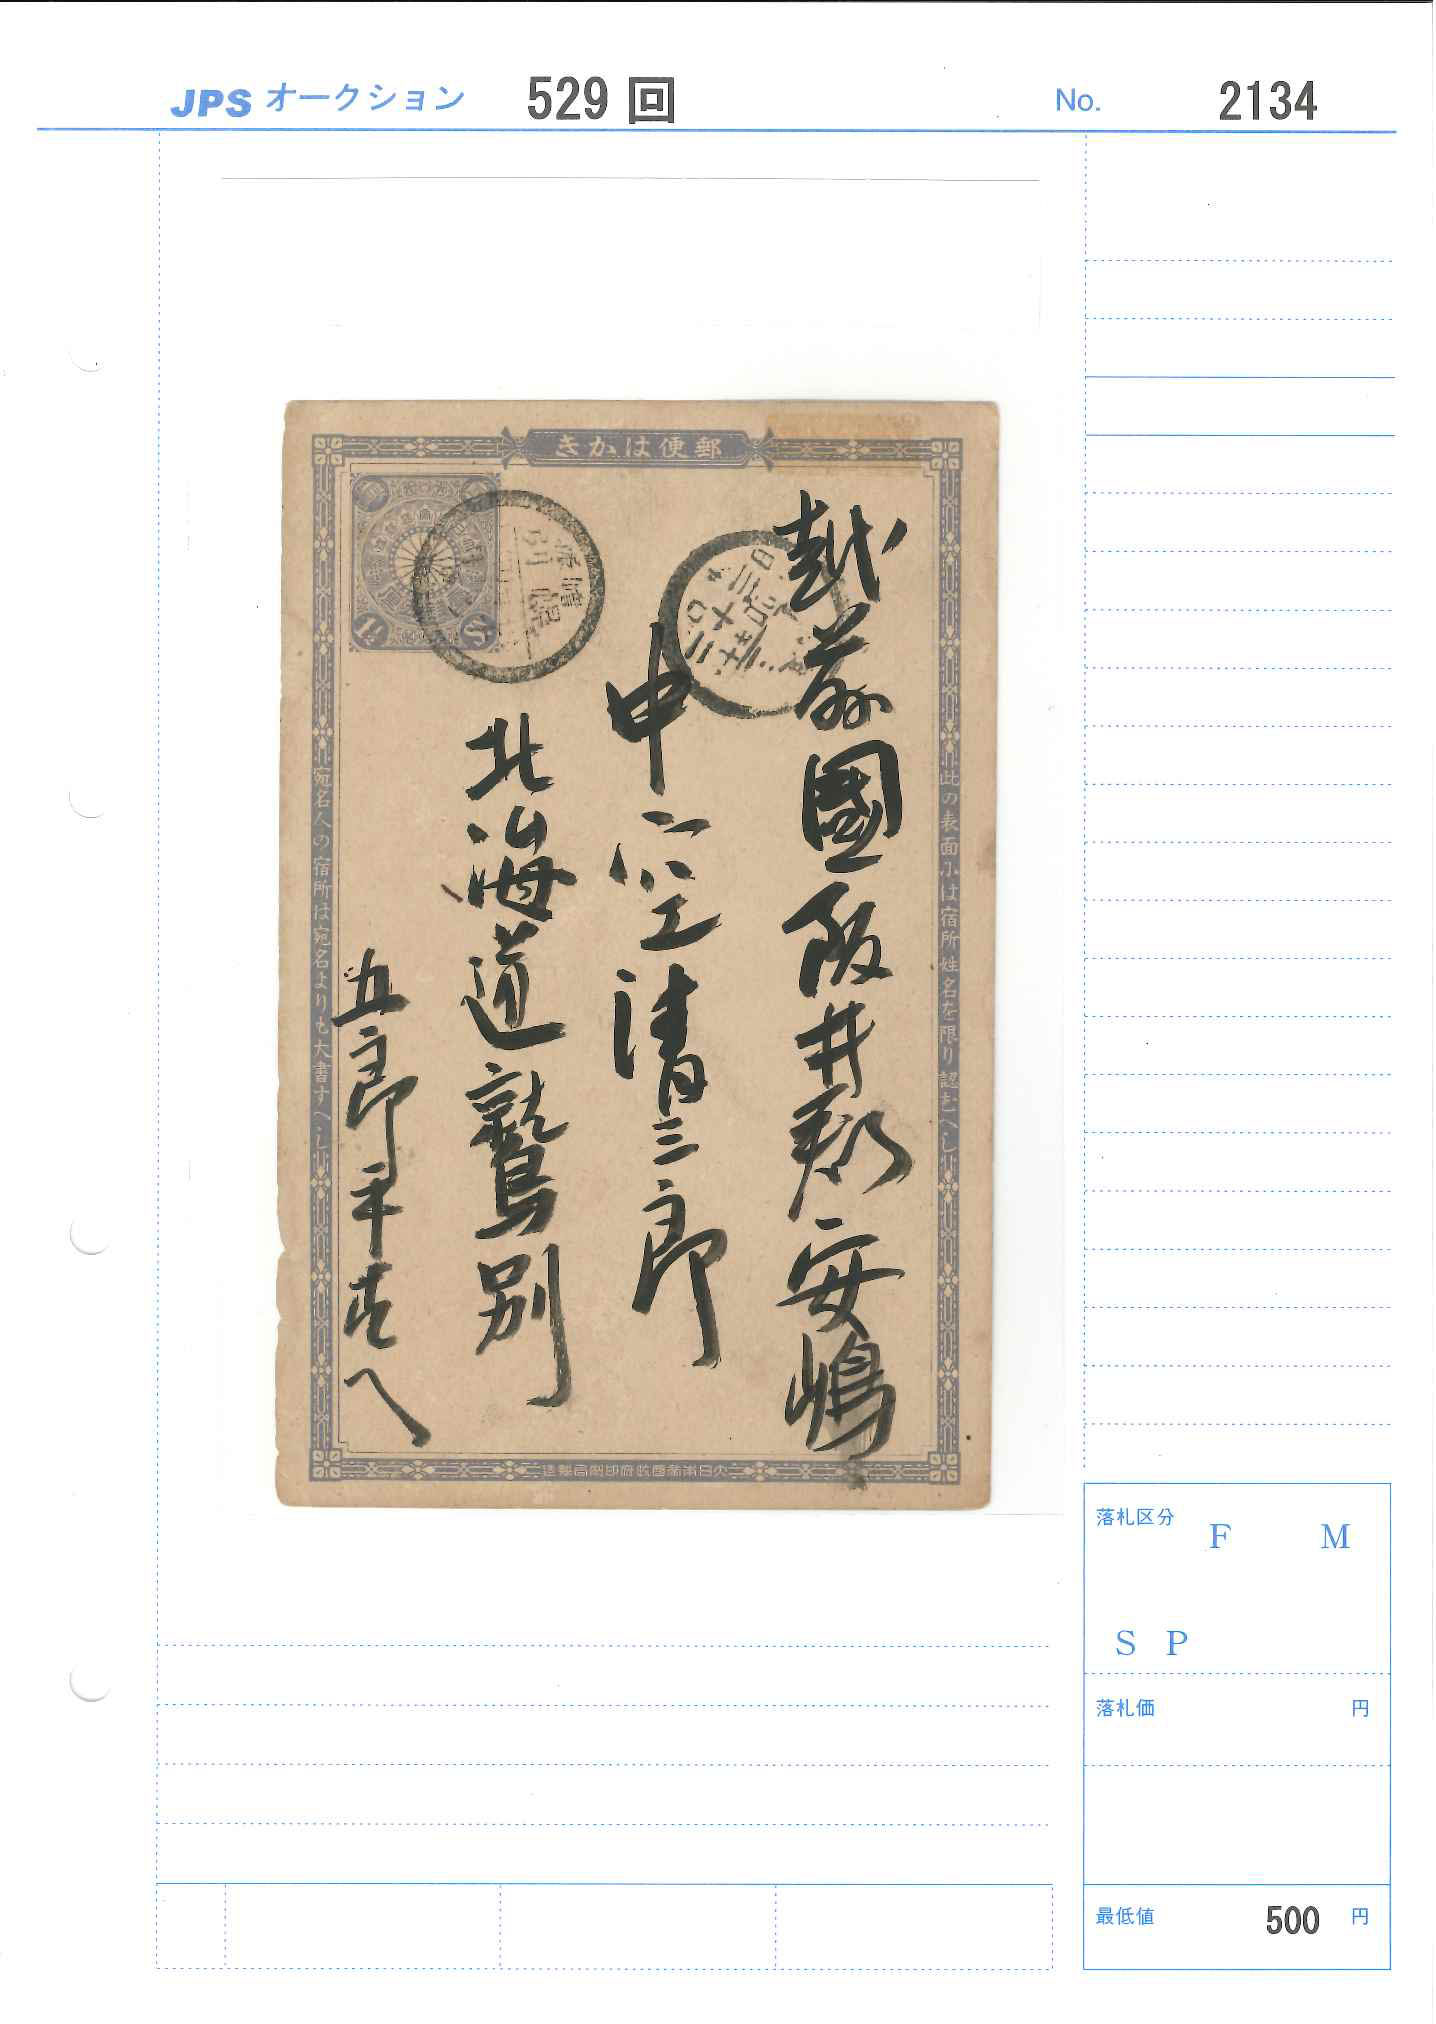 JPS オークション 529 回 No. 2134
郵便はがき
1 S
此の表面には宿所姓名を限り認むへし
越前國阪井郡安嶋
中空清三郎
北海道鷲別
五郎平
宛名人の宿所は宛名よりも大書すへし
大日本帝國政府印刷局製造
落札区分 F M
S P
落札価 円
最低値 500 円